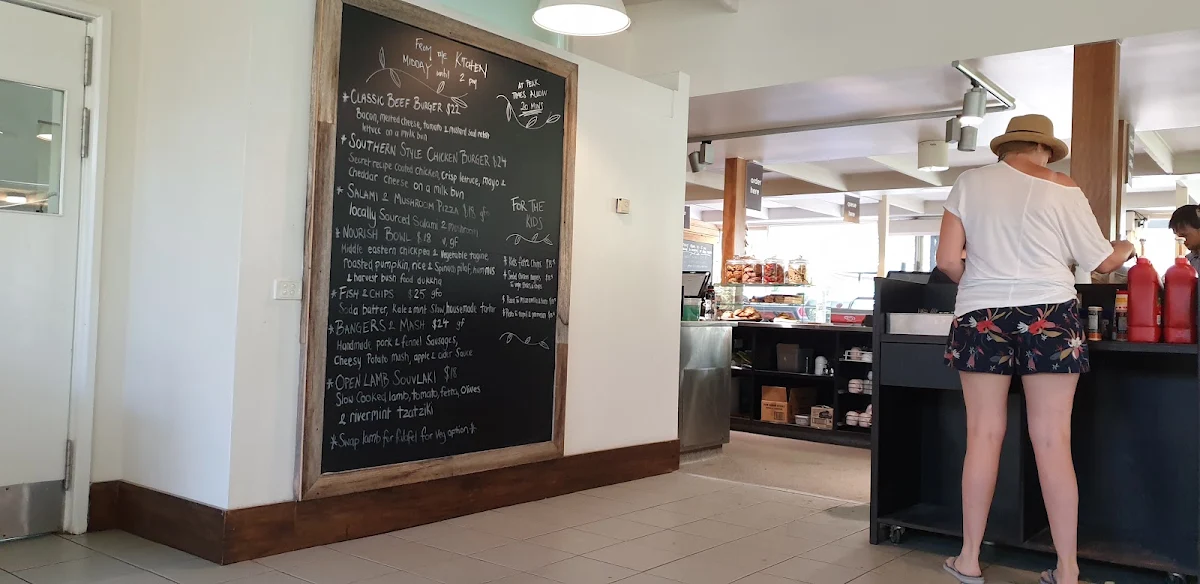 FROM THE KITCHEN
MIDDAY until 2 pm
AT PEAK
TIMES ALLOW
20 MINS
* CLASSIC BEEF BURGER $22
Bacon, melted cheese, tomato & mustard
lettuce on a milk bun
* SOUTHERN STYLE CHICKEN BURGER $24
Secret recipe coated chicken, crisp lettuce, mayo &
Cheddar cheese on a milk bun
* SALAMI & MUSHROOM PIZZA $18 gfo
locally Sourced Salami & mushroom
* NOURISH BOWL $18 v, gf
Middle eastern chickpea & vegetable tagine
roasted pumpkin, rice & Spinach pilaf, hummus
& harvest bush food dukkha
* FISH & CHIPS $25 gfo
Soda batter, Kale & mint Slaw, housemade tartar
* BANGERS & MASH $24 gf
Handmade pork & fennel Sausages,
Cheesy Potato mash, apple & cider Sauce
* OPEN LAMB SOUVLAKI $18
Slow Cooked lamb, tomato, fetta, Olives
& rivermint tzatziki
* Swap lamb for falafel for veg option *
FOR THE
KIDS
* Kids fish & chips
order
here